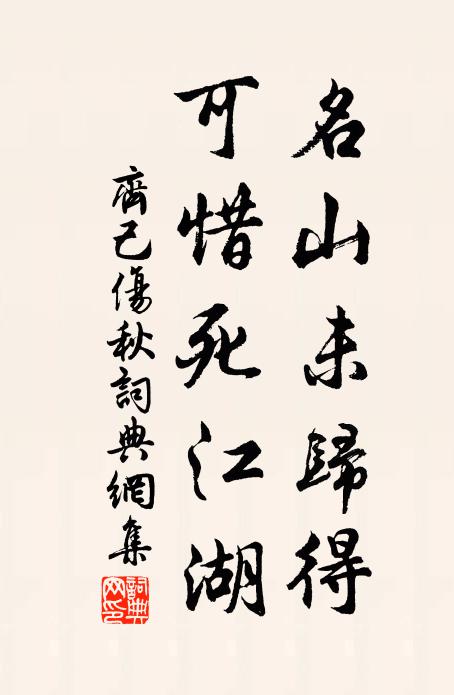 名山未歸得
可惜死江湖
齊己傷秋詞典網集
詞典網印